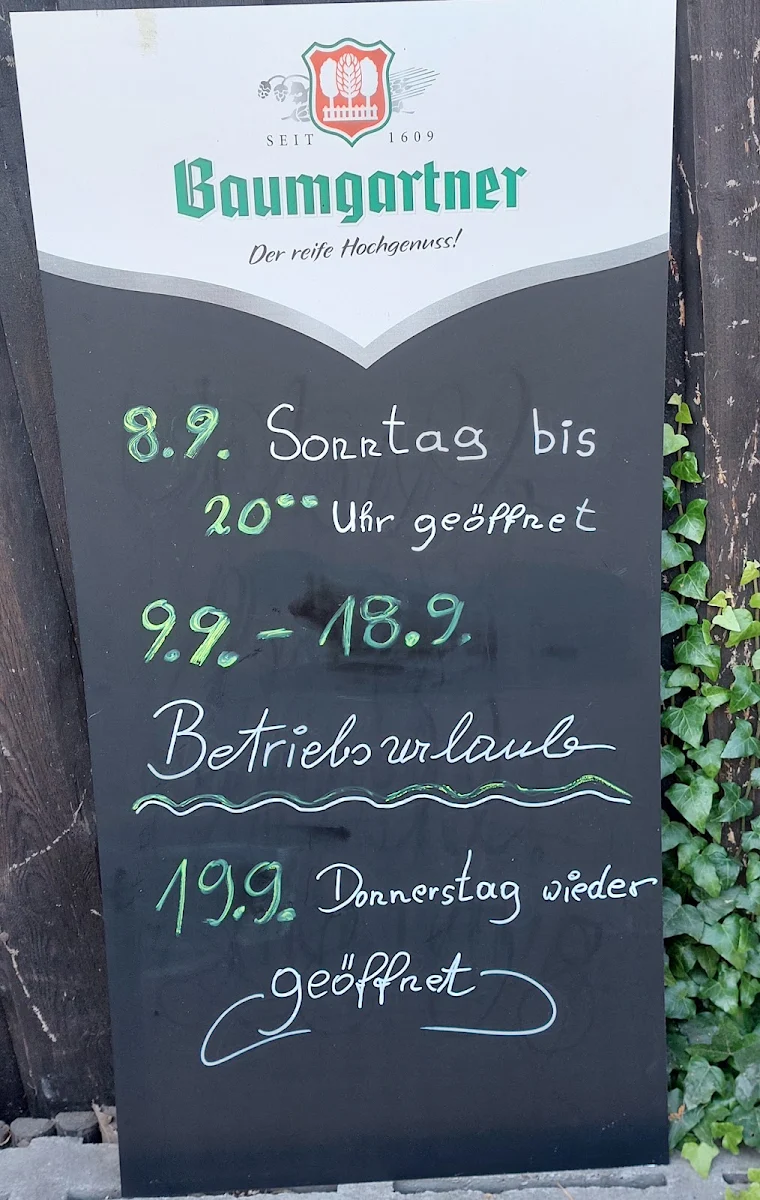 SEIT 1609
Baumgartner
Der reife Hochgenuss!
8.9. Sonntag bis
20°° Uhr geöffnet
9.9. - 18.9.
Betriebsurlaub
19.9. Donnerstag wieder
geöffnet